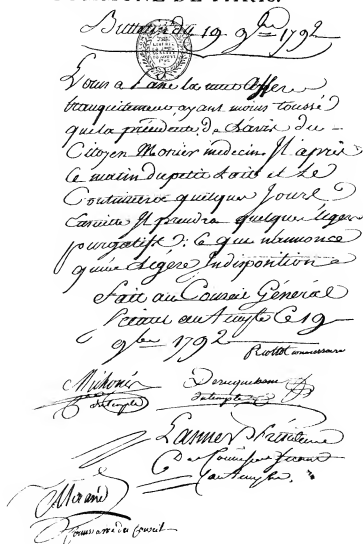 COMMUNE DE PARIS.
Bulletin du 19 9bre 1792
Louis a passé la nuit assez
tranquillement ayant moins toussé
que la précédente, de l'avis du
Citoyen Monier médecin Il a pris
ce matin du petit lait et Le
Continuera quelques Jours
Ensuite Il prendra quelque léger
purgatif; ce qui n'annonce
qu'une légère Indisposition
Fait au Conseil Général
Séant au Temple Ce 19
9bre 1792
commissaire
Michonis
du temple
du temple
Président
au temple
Commissaire du Conseil